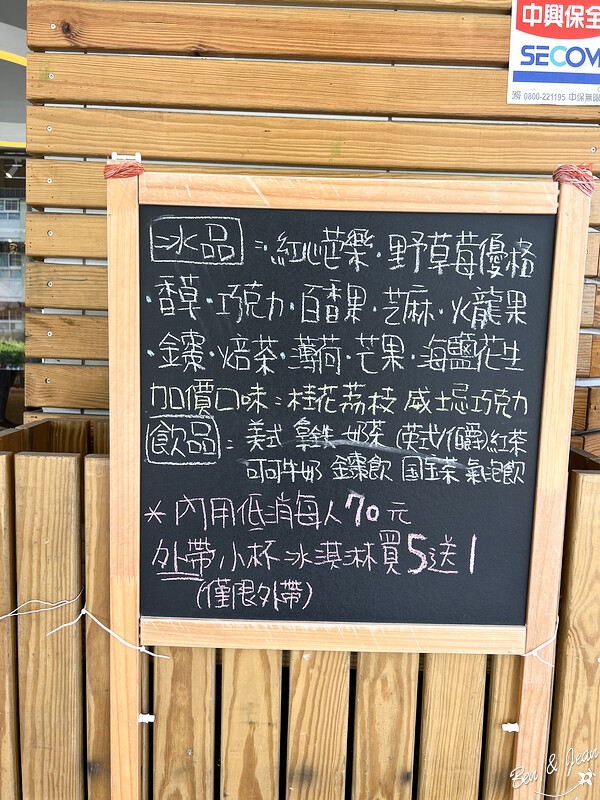 中興保全
SECOM
0800-221195 中保無限
冰品：紅心芭樂·野草莓優格
·香草·巧克力·百香果·芝麻·火龍果
·金棗·焙茶·薄荷·芒果·海鹽花生
加價口味：桂花荔枝 威士忌巧克力
飲品：美式 拿鐵 奶茶 (英式/伯爵)紅茶
可可牛奶 金棗飲 国宝茶 氣泡飲
＊內用低消每人70元
外帶小杯冰淇淋買5送1
(僅限外帶)
Ben & Jean